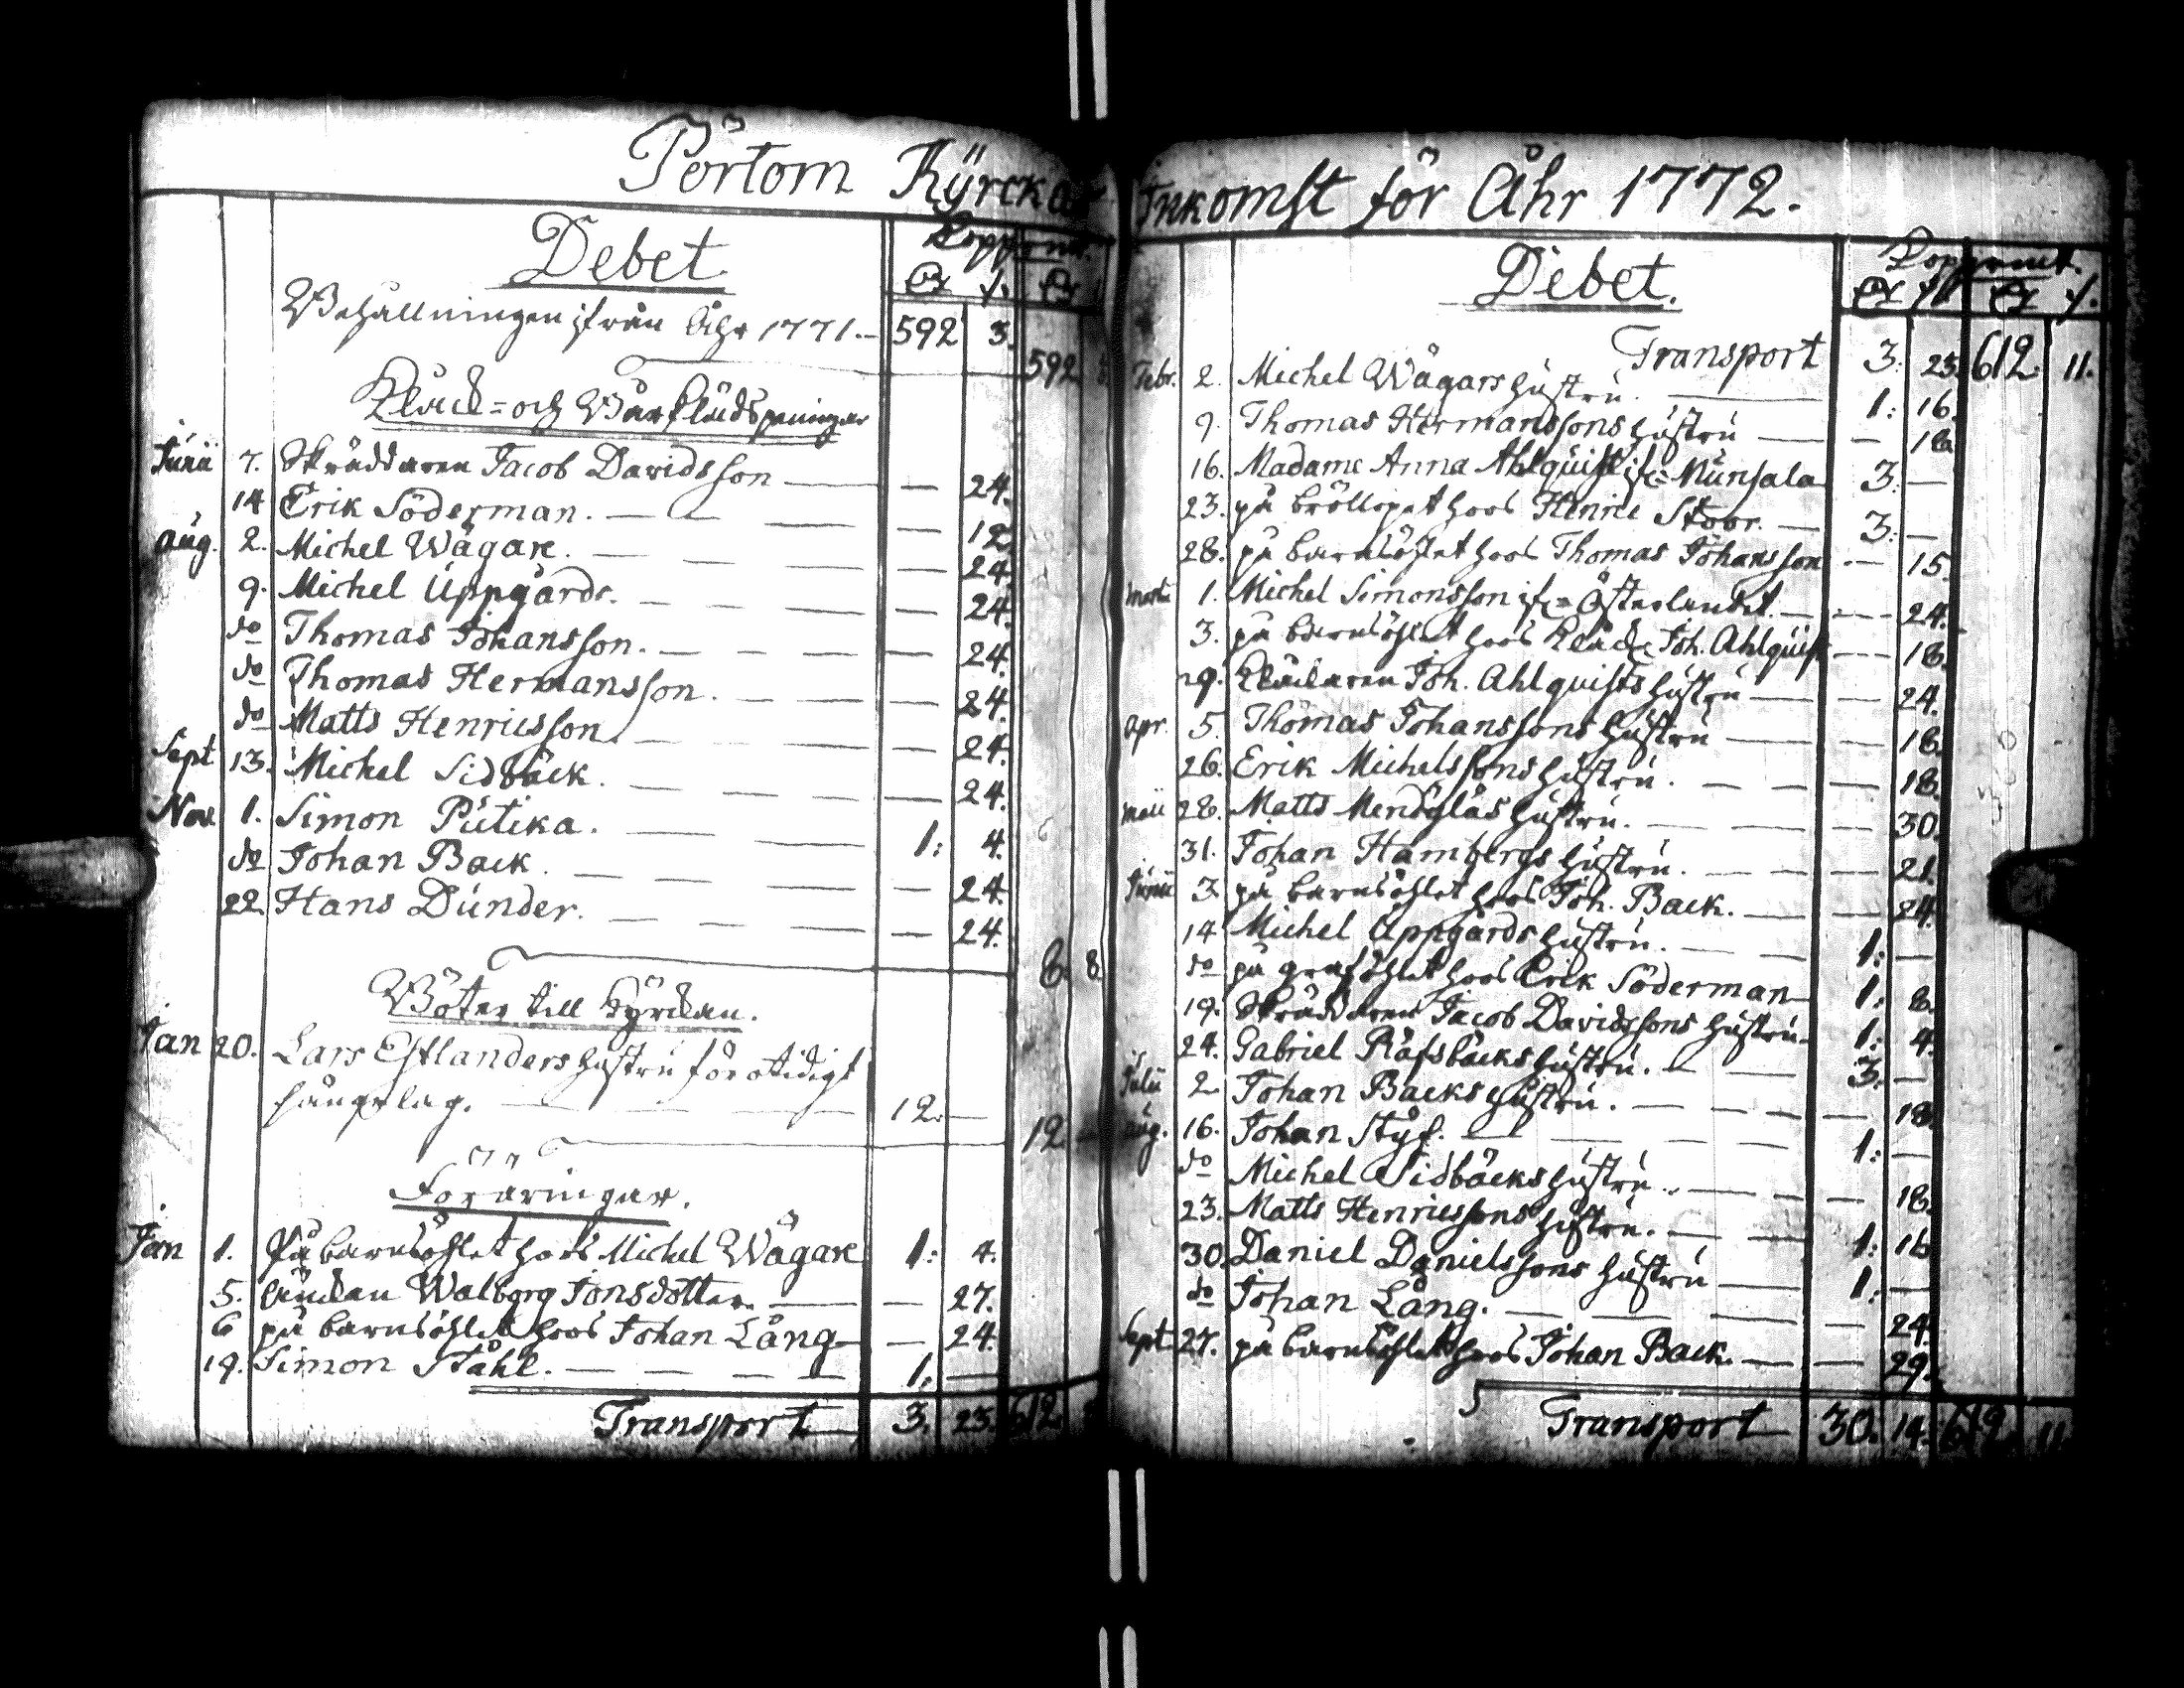 Pörtom Kyrckas
Debet Kopp:mt.
Behållningen ifrån Åhr 1771. 592 3.
592
Klåck- och Bårklädspeningar
Junii 7. Skräddaren Jacob Davidsson — 24.
14 Erik Söderman. — 12.
Aug. 2. Michel Wägare. — 24.
9. Michel Uppgårds. — 24.
do Thomas Johansson. — 24.
do Thomas Hermansson. — 24.
do Matts Henricsson. — 24.
Sept 13. Michel Sidbäck. — 24.
Nov. 1. Simon Putika. 1: 4.
do Johan Back. — 24.
22. Hans Dunder. — 24.
8. 8.
Böter till Kyrckan.
Jan 20. Lars Estlanders hustru för otidigt
sängelag. 12. —
12. —
Föräringar.
Jan 1. På barnsöhlet hoos Michel Wägare 1: 4.
5. Änckan Walborg Jonsdotter. — 27.
6 på barnsöhlet hoos Johan Lång — 24.
19. Simon Ståhl. 1. —
Transport 3. 23. 612.
Inkomst för Åhr 1772.
Debet. Kopp:mt.
Transport 3. 23. 612. 11.
Febr. 2. Michel Wägars hustru. 1: 16.
9. Thomas Hermanssons hustru — 18.
16. Madame Anna Ahlquist if: Munsala 3. —
23. på bröllopet hoos Henric Stoor. 3: —
28. på barnsöhlet hoos Thomas Johansson — 15.
Mart. 1. Michel Simonsson if: Österlandet. — 24.
3. på barnsöhlet hoos Klåck: Joh. Ahlquist — 18.
29. Klåckaren Joh. Ahlquists hustru — 24.
Apr. 5. Thomas Johanssons hustru — 18.
26. Erik Michelssons hustru. — 18.
Maii 28. Matts Mendsglas hustru. — 30.
31. Johan Hambergs hustru. — 21.
Junii 3. på barnsöhlet hoos Joh. Back. — 24.
14 Michel Uppgårds hustru. 1: —
do på graföhlet hoos Erik Söderman 1: 8.
19. Skräddaren Jacob Davidssons hustru 1: 4.
24. Gabriel Räfsbäcks hustru. 3: —
Julii 2. Johan Backs hustru. — 18.
Aug. 16. Johan Styf. 1: —
do Michel Sidbäcks hustru. — 18.
23. Matts Henricssons hustru. 1: 16
30. Daniel Danielssons hustru 1: —
do Johan Lång. — 24.
Sept. 27. på barnsöhlet hoos Johan Back. — 29.
Transport 30. 14. 612. 11.